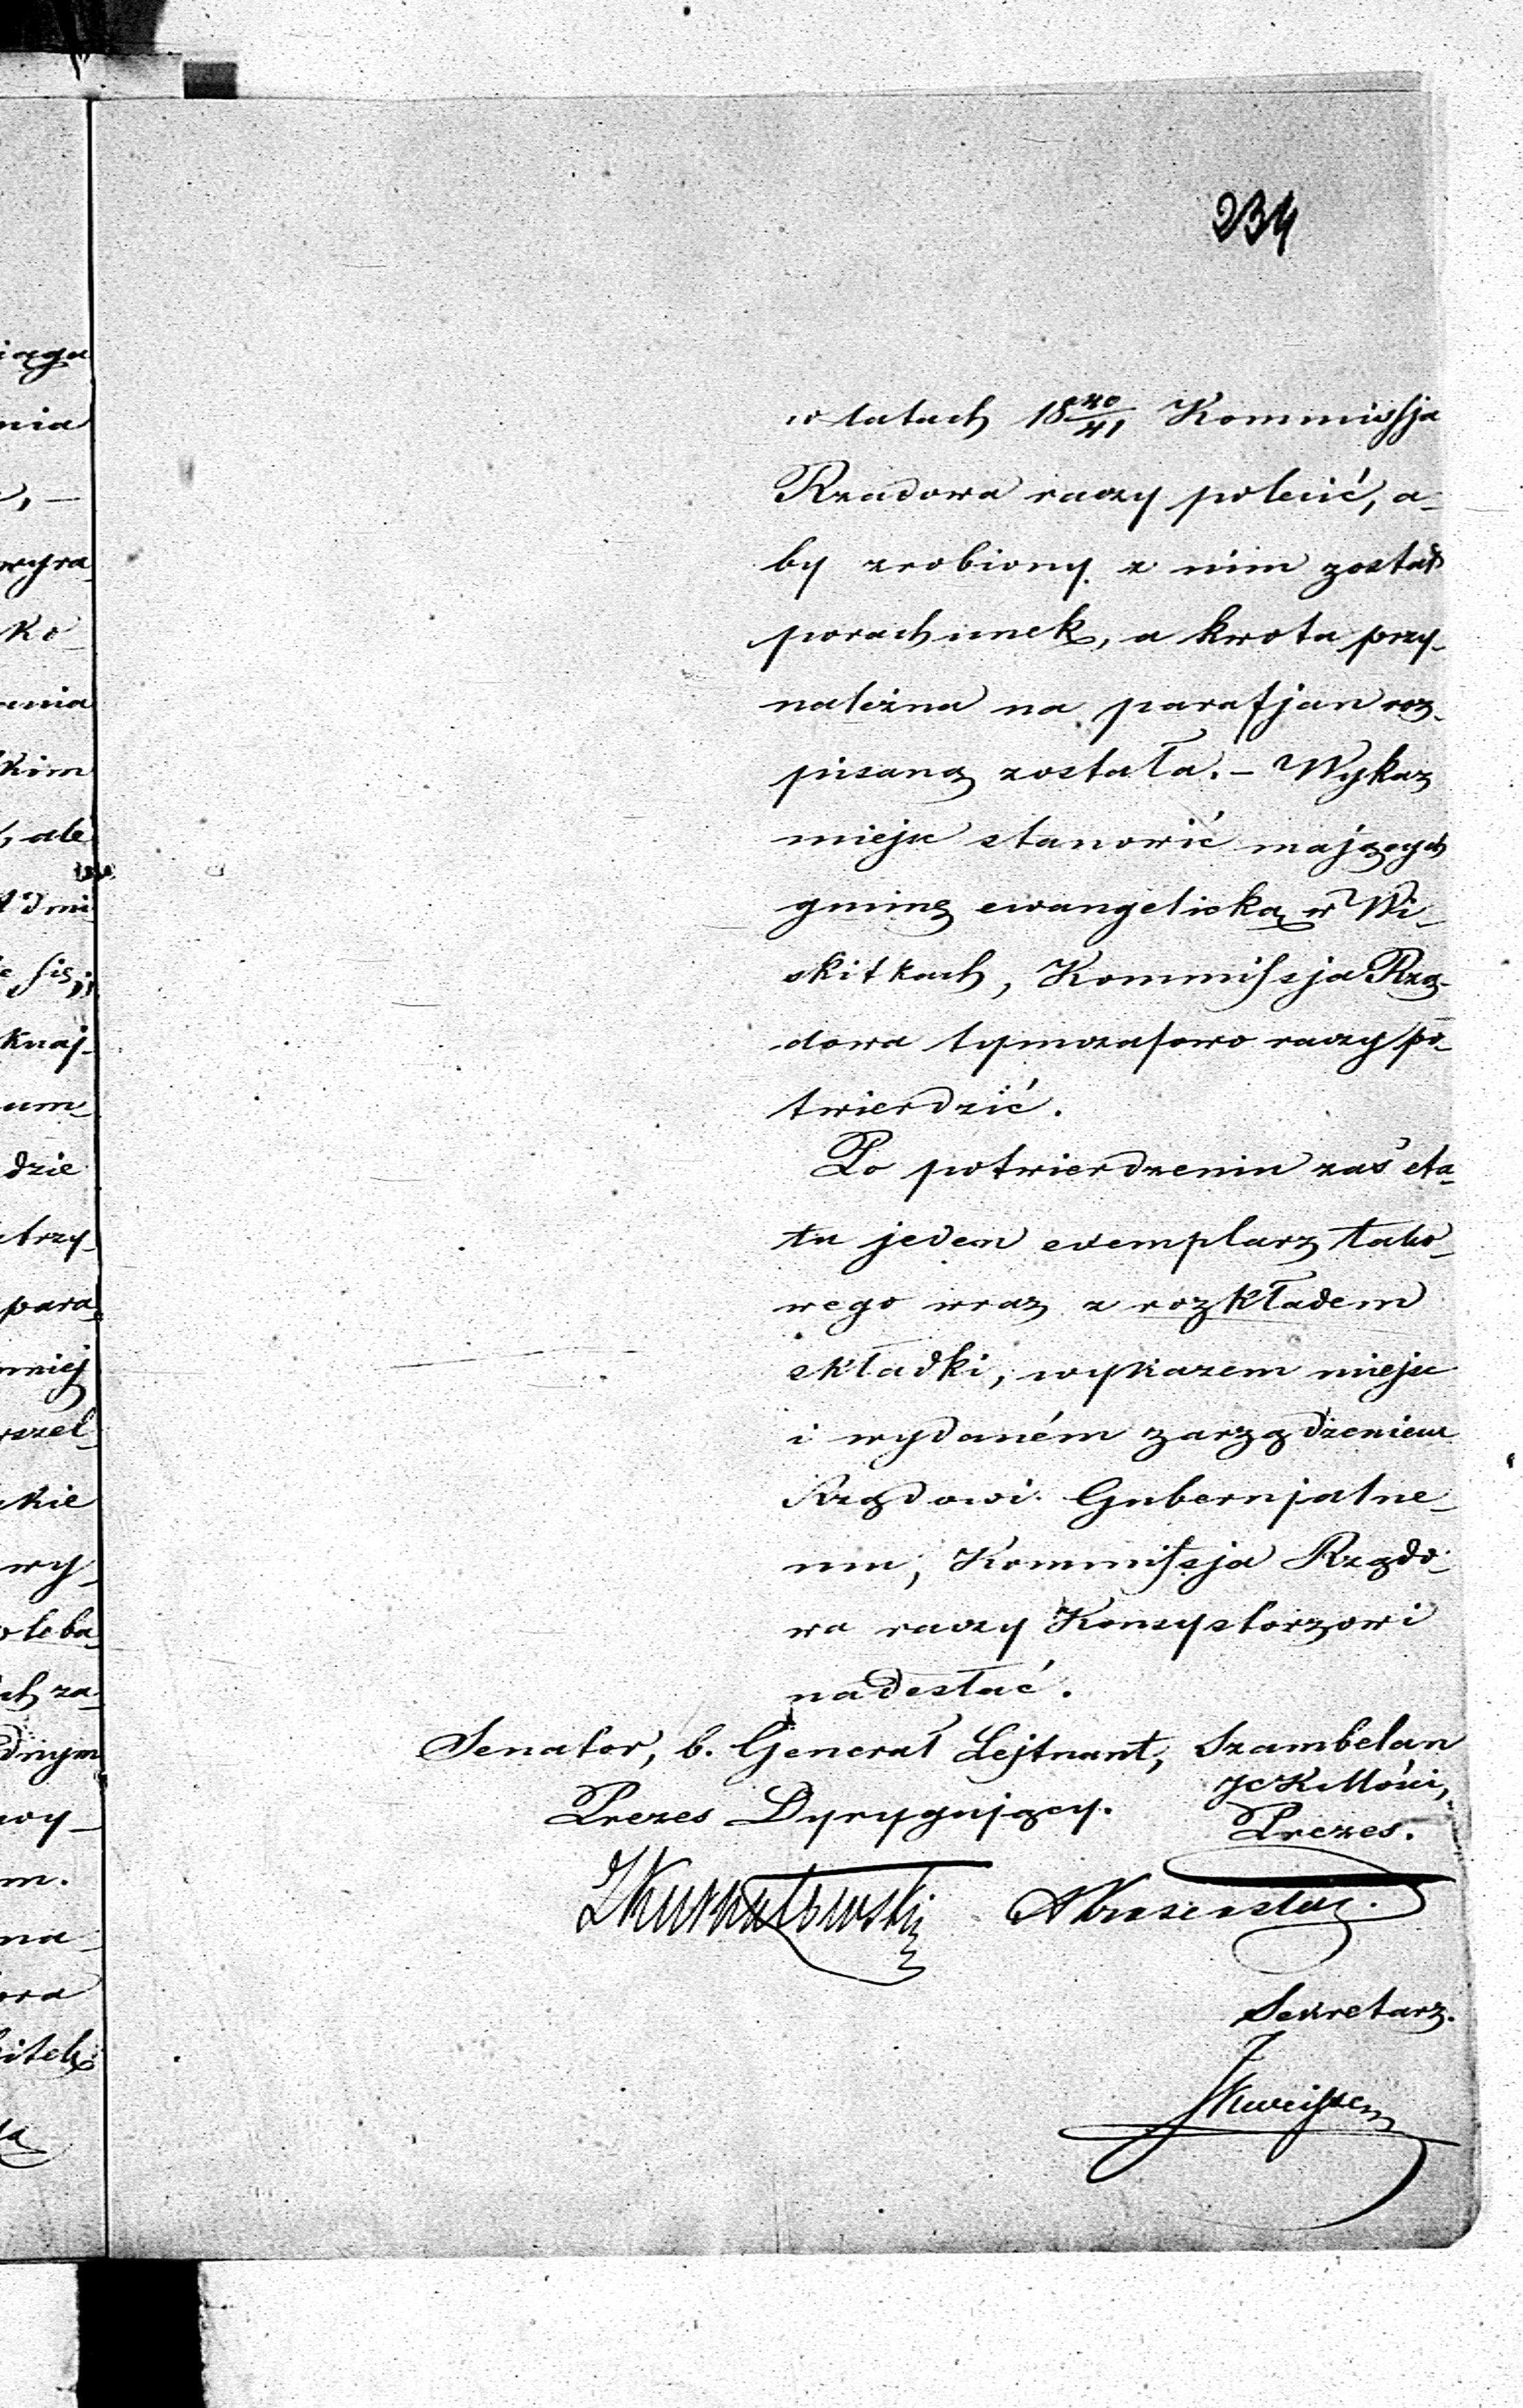 234
w latach 18 40/41 Kommissja
Rządowa raczy polecić, a-
by zrobiony z nim został
porachunek, a kwota przy-
należna na parafjan roz-
pisaną została. – Wykaz
miejsc stanowić mających
gminę ewangelicką w Wi-
skitkach, Kommissja Rzą-
dowa tymczasowo raczy po-
twierdzić.
Po potwierdzeniu zaś eta-
tu jeden exemplarz tako-
wego wraz z rozkładem
składki, wykazem miejsc
i wydaném zarządzeniem
Rządowi Gubernjalne-
mu, Kommissja Rządo-
wa raczy Konsystorzowi
nadesłać.
Senator, b. Generał Lejtnant, Szambelan
JCKMości,
Prezes Dyrygujący. Prezes.
Sekretarz.
iągu
nia
wyra
ko
enia
kim
, ale
dmi
się,
knaj-
um-
dzie
trzy-
para-
mniej
wszel-
kie
wy-
za-
dnym
wy-
m.
na-
ora